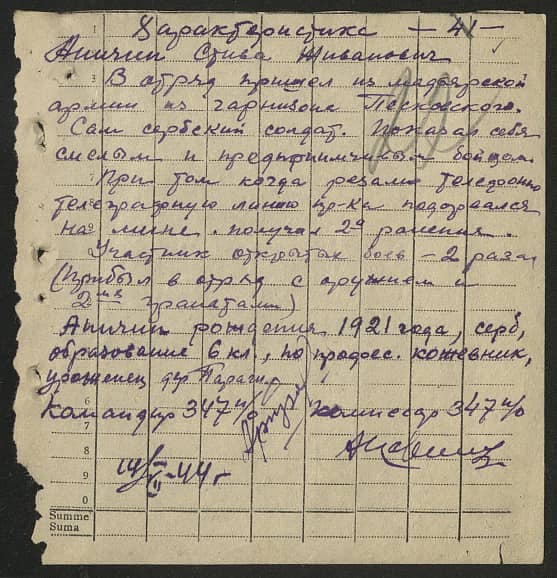 Характеристика —41—
Аничин Стива Живанович
В отряд пришел из мадьярской
армии из гарнизона Песковского.
Сам сербский солдат. Показал себя
смелым и предприимчивым бойцом
При том когда резали телефонно
телеграфную линию пр-ка подорвался
на мине. получил 2а ранения.
Участник открытых боев – 2 раза
(прибыл в отряд с оружием и
2мя гранатами)
Аничин рождения 1921 года, серб,
образование 6 кл., по професс. кожевник,
уроженец дер
Командир 347 п/о Комиссар 347 п/о
44 г
6
7
8
9
0
Summe
Suma